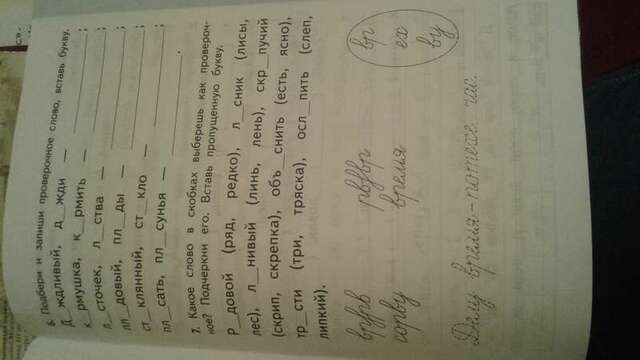 6. Подбери и запиши проверочное слово, вставь букву.
д_ждливый, д_жди — ;
к_рмушка, к_рмить — ;
л_сточек, л_ства — ;
пл_довый, пл_ды — ;
ст_клянный, ст_кло — ;
пл_сать, пл_сунья — .
7. Какое слово в скобках выберешь как провероч-
ное? Подчеркни его. Вставь пропущенную букву.
р_довой (ряд, редко), л_сник (лисы,
лес), л_нивый (линь, лень), скр_пучий
(скрип, скрепка), объ_снить (есть, ясно),
тр_сти (три, тряска), осл_пить (слеп,
липкий).
врврв рврвр вр
сорву время ех
ву
Делу время - потехе час.